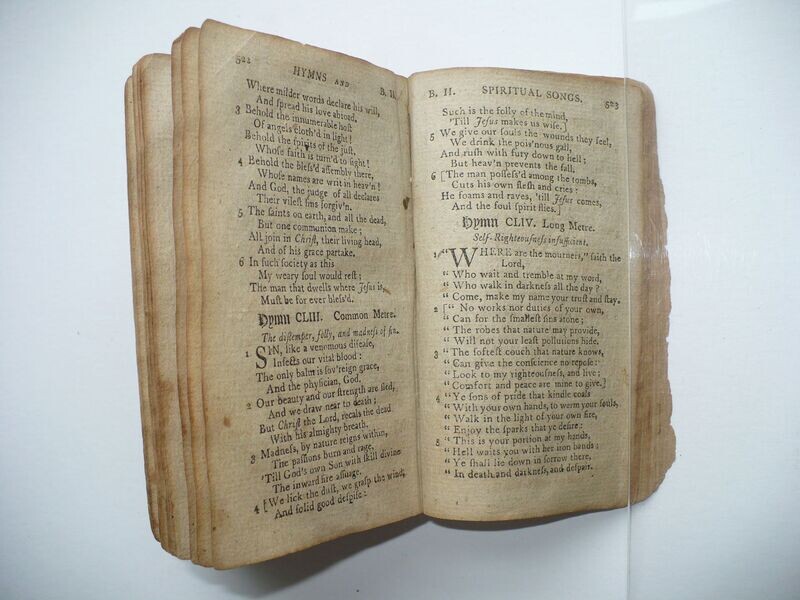 522
HYMNS AND
B. II.
Where milder words declare his will,
And spread his love abroad.
3 Behold the innumerable hoſt
Of angels cloth'd in light!
Behold the ſpirits of the juſt,
Whoſe faith is turn'd to ſight!
4 Behold the bleſs'd aſſembly there,
Whoſe names are writ in heav'n!
And God, the judge of all declares
Their vileſt ſins forgiv'n.
5 The ſaints on earth, and all the dead,
But one communion make;
All join in Chriſt, their living head,
And of his grace partake.
6 In ſuch ſociety as this
My weary ſoul would reſt;
The man that dwells where Jeſus is,
Muſt be for ever bleſs'd.
Hymn CLIII. Common Metre.
The diſtemper, folly, and madneſs of ſin.
1 SIN, like a venomous diſeaſe,
Infects our vital blood:
The only balm is ſov'reign grace,
And the phyſician, God.
2 Our beauty and our ſtrength are fled,
And we draw near to death;
But Chriſt the Lord, recals the dead
With his almighty breath.
3 Madneſs, by nature reigns within,
The paſſions burn and rage,
'Till God's own Son with ſkill divine
The inward fire aſſuage.
4 [We lick the duſt, we graſp the wind,
And ſolid good deſpiſe:
B. II.
SPIRITUAL SONGS.
523
Such is the folly of the mind,
'Till Jeſus makes us wiſe.]
5 We give our ſouls the wounds they feel,
We drink the poiſ'nous gall,
And ruſh with fury down to hell;
But heav'n prevents the fall.
6 [The man poſſeſs'd among the tombs,
Cuts his own fleſh and cries:
He foams and raves, 'till Jeſus comes,
And the foul ſpirit flies.]
Hymn CLIV. Long Metre.
Self-Righteouſneſs inſufficient.
1 "WHERE are the mourners," ſaith the
Lord,
" Who wait and tremble at my word,
" Who walk in darkneſs all the day?
" Come, make my name your truſt and ſtay.
2 [" No works nor duties of your own,
" Can for the ſmalleſt ſins atone;
" The robes that nature may provide,
" Will not your leaſt pollutions hide.
3 " The ſofteſt couch that nature knows,
" Can give the conſcience no repoſe:
" Look to my righteouſneſs, and live;
" Comfort and peace are mine to give.]
4 " Ye ſons of pride that kindle coals
" With your own hands, to warm your ſouls,
" Walk in the light of your own fire,
" Enjoy the ſparks that ye deſire:
5 " This is your portion at my hands,
" Hell waits you with her iron bands:
" Ye ſhall lie down in ſorrow there,
" In death and darkneſs, and deſpair.